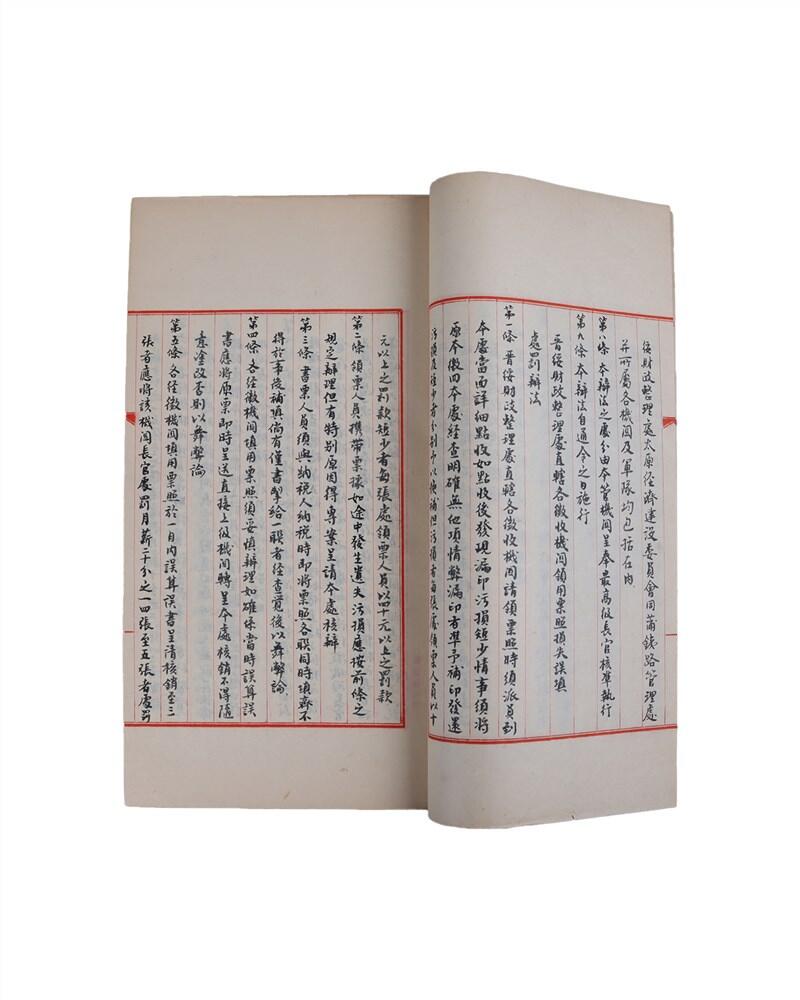 綏財政整理處太原經濟建設委員會同蒲鉄路管理處
并所屬各機関及軍隊均包括在内
第八條 本辦法之處分由本管機関呈奉最高級長官核準執行
第九條 本辦法自通令之日施行
晋綏財政整理處直轄各徵收機関領用票照損失誤填
處罰辦法
第一條 晋綏財政整理處直轄各徵收機関請領票照時須派員到
本處當面詳細點收如點收後發現漏印污損短少情事須將
原本徼回本處経查明確無他項情弊漏印方準予補印發還
污損及短少者分别予以換補但污損者每張處領票人員以十
元以上之罰款短少者每張處領票人員以四十元以上之罰款
第二條 領票人員携带票據如途中發生遺失污損應按前條之
規定辦理但有特别原因得專案呈請本處核辦
第三條 書票人員須與納税人納税時即將票照各聯同時填齊不
得於事後補填倘有僅書掣給一聯者経查覺後以舞弊論
第四條 各経徵機関填用票照須妥慎辦理如確係當時誤算誤
書應將原票即時呈送直接上级機関轉呈本處核銷不得隨
意塗改否則以舞弊論
第五條 各経徵機関填用票照於一月内誤算誤書呈請核銷至三
張者應將該機関長官處罰月薪二十分之一四張至五張者處罰